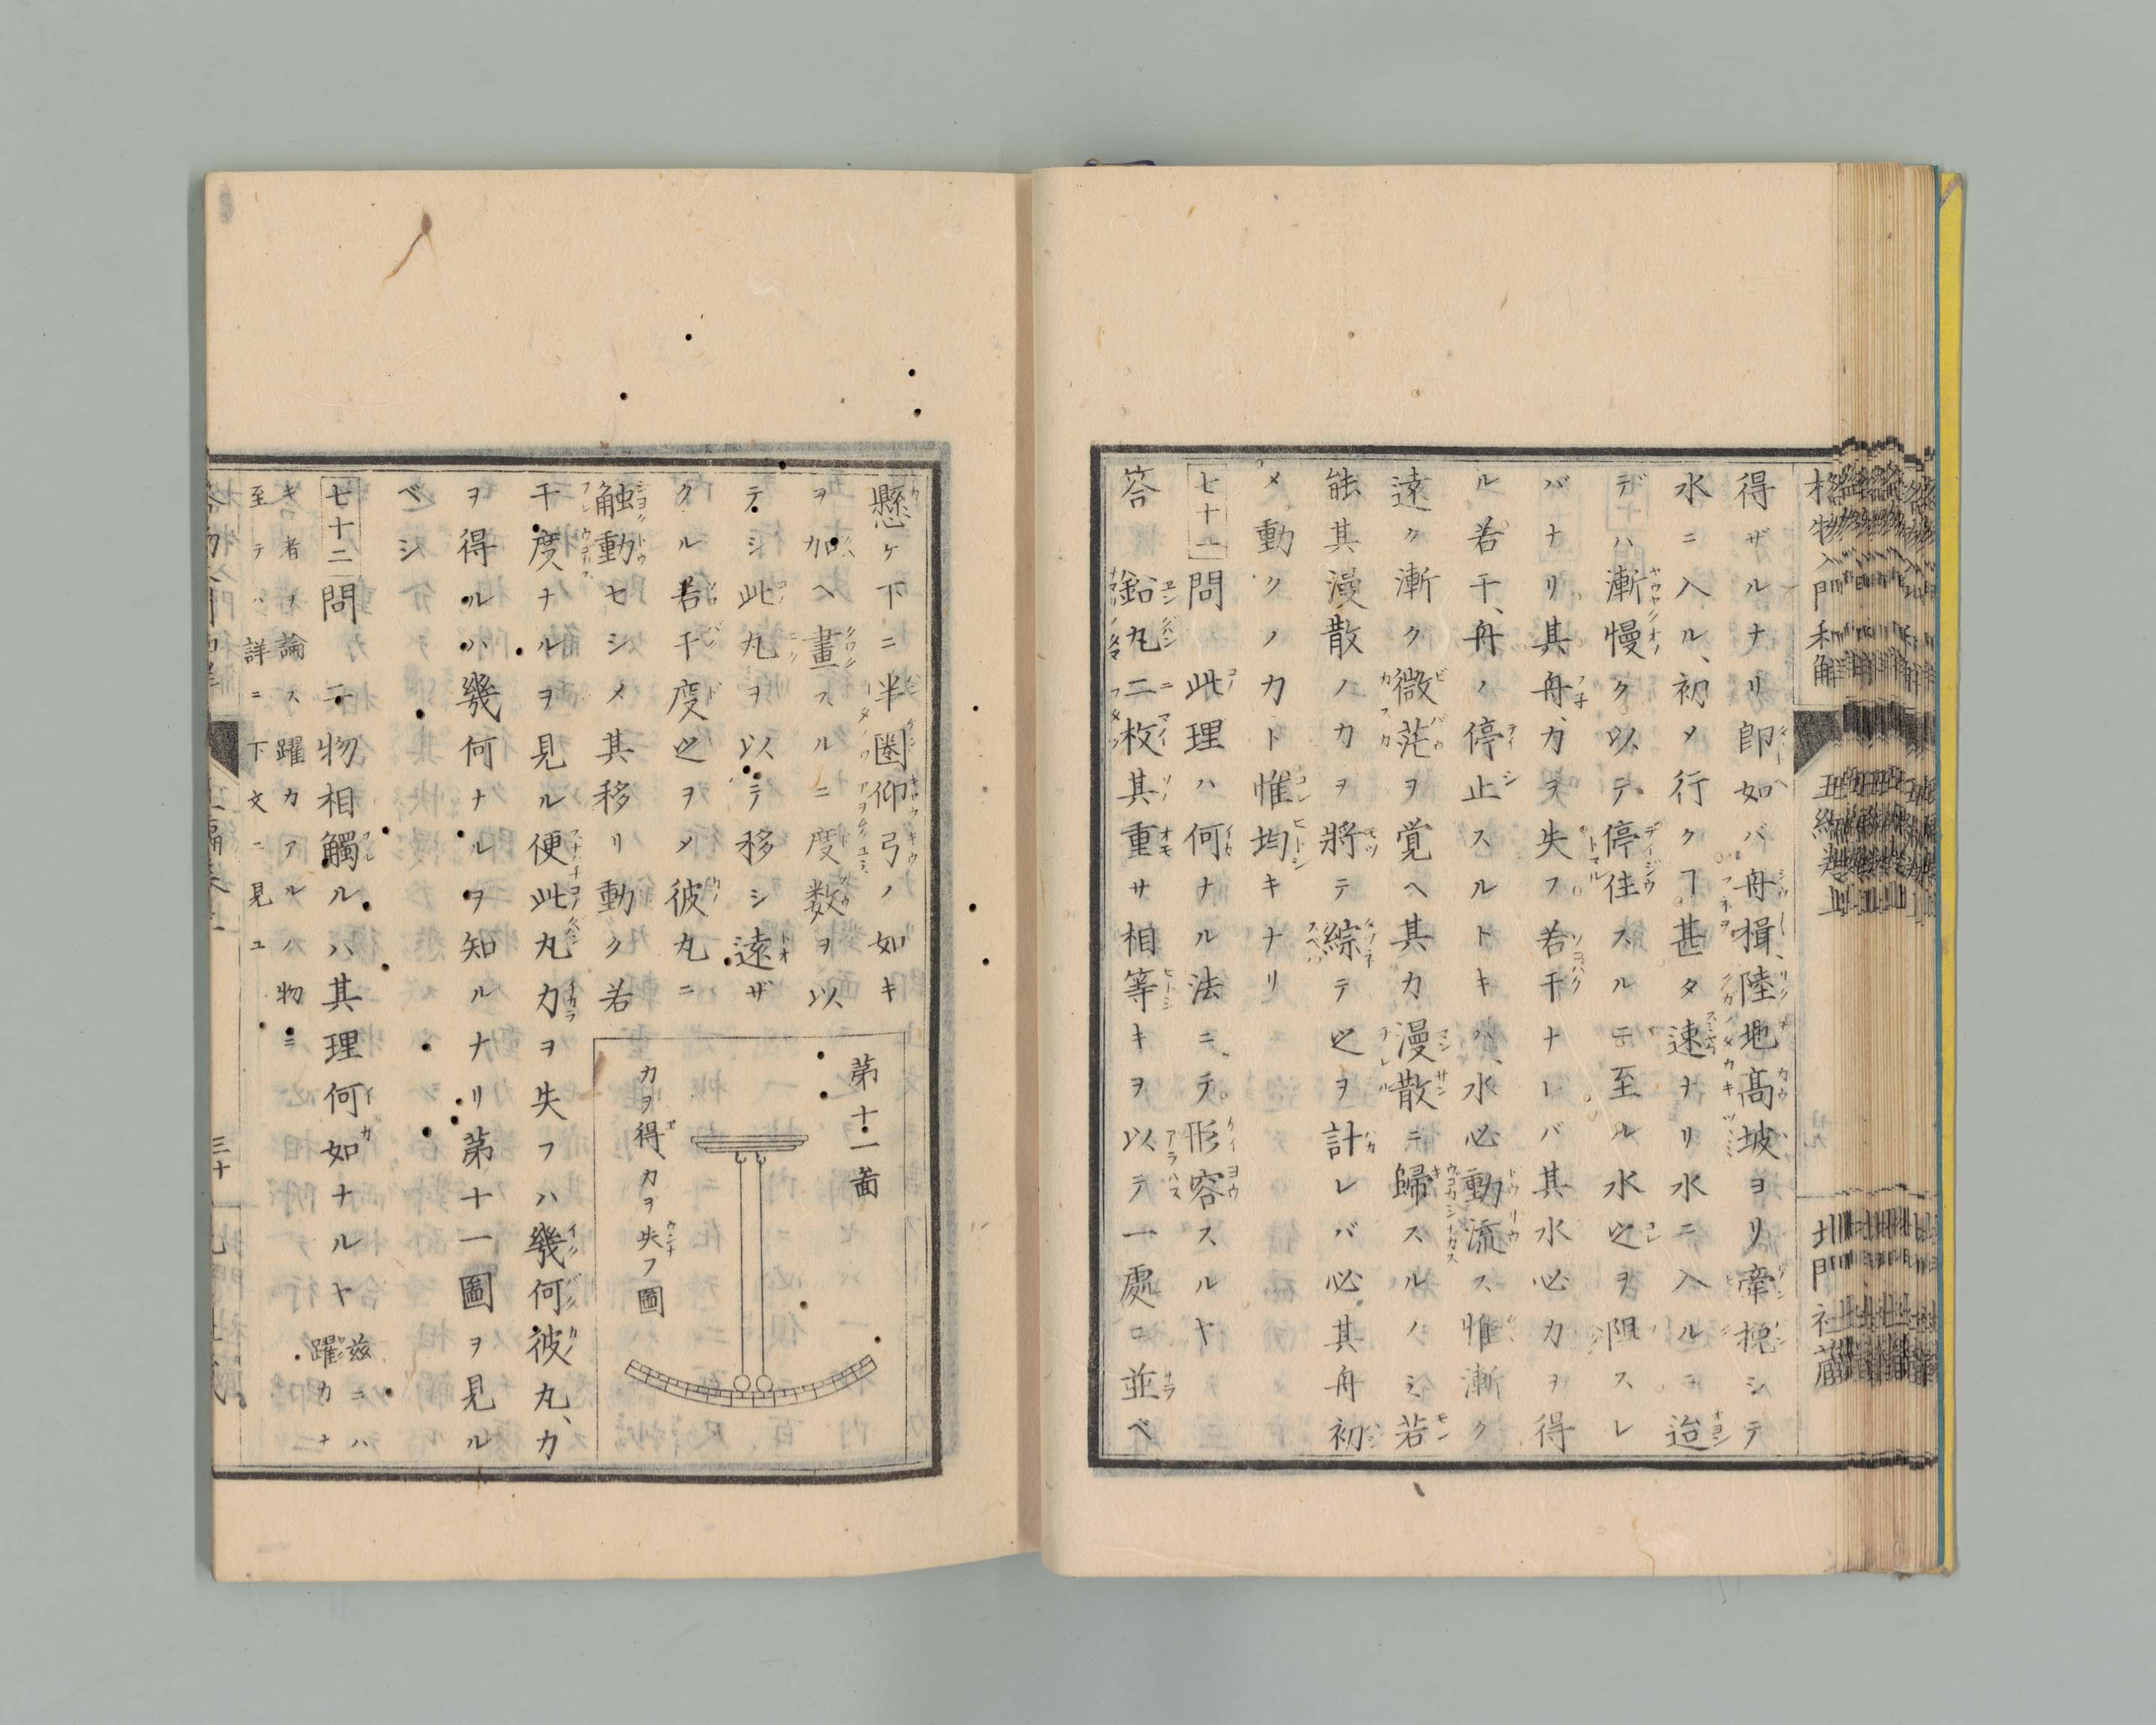 格物入門和解
北門社蔵
得ザルナリ即如バ舟揖、陸地髙坡ヨリ牽挽シテ
水ニ入ル、初メ行クヿ甚タ速ナリ水ニ入ルニ迨
デハ漸慢ク以テ停住スルニ至ル水之ヲ阻スレ
バナリ其舟、力ヲ失フ若干ナレバ其水必力ヲ得
ル若干、舟ノ停止スルトキハ、水必動流ス惟漸ク
遠ク漸ク微茫ヲ覚ヘ其力漫散ニ歸スルノミ若
能其漫散ノカヲ將テ綜テ之ヲ計レバ必其舟初
メ動クノカト惟均キナリ
七十一問此理ハ何ナル法ニテ形容スルヤ
答 鉛丸二枚其重サ相等キヲ以テ一處ニ並ベ
懸ケ下ニ半圏仰弓ノ如キ
ヲ加ヘ畫スルニ度数ヲ以
テシ此丸ヲ以テ移シ遠ザ
クル若干度之ヲメ彼丸ニ
触動セシメ其移リ動ク若
干度ナルヲ見ル便此丸力ヲ失フハ幾何彼丸、力
ヲ得ルハ幾何ナルヲ知ルナリ第十一圖ヲ見ル
ベシ
第十一啚
力ヲ得、力ヲ失フ圖
七十二問 二物相觸ルハ其理何如ナルヤ 茲ニハ
躍カナ
キ者ヲ論ス躍カアルノ物ニ
至テハ詳ニ下文ニ見ユ
三十